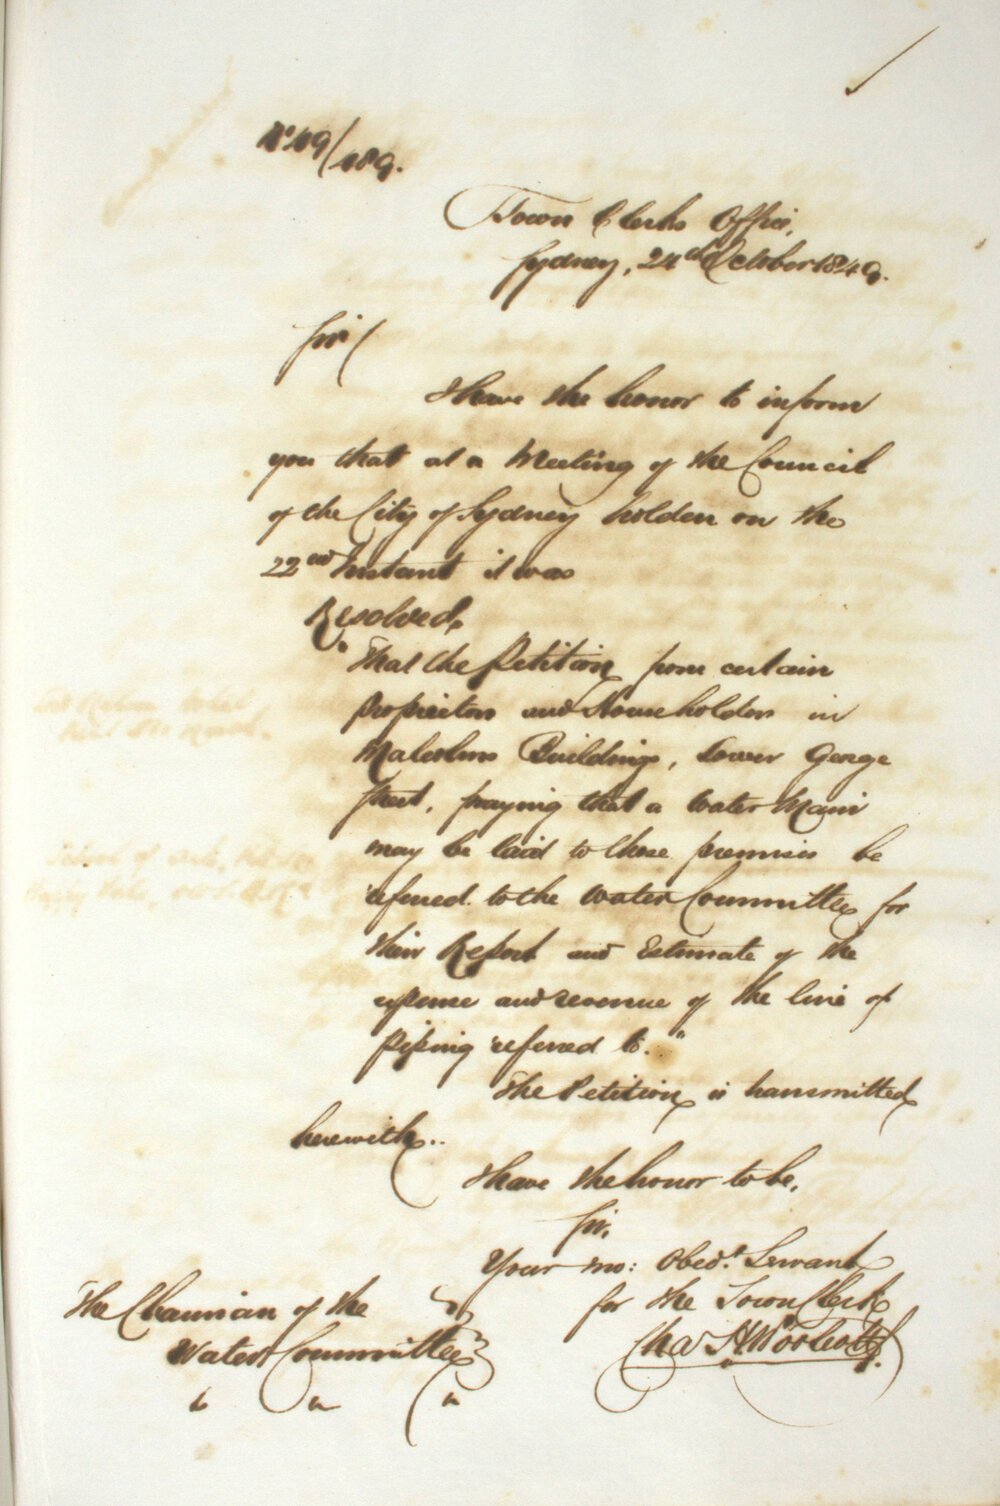 No 49/189.
Town Clerks Office,
Sydney, 24th October 1849.
Sir
I have the honor to inform
you that at a Meeting of the Council
of the City of Sydney holden on the
22nd Instant it was
Resolved,
"That the Petition from certain
Proprietors and Householders in
Malcolms Buildings, Lower George
Street, praying that a Water Main
may be laid to those premises be
referred to the Water Committee for
their Report and Estimate of the
expense and revenue of the line of
Piping referred to."
The Petition is transmitted
herewith..
I have the honor to be,
Sir,
Your mo: Obedt. Servant
for the Town Clerk
Chas H Woolcott
The Chairman of the
Water Committee
" " "